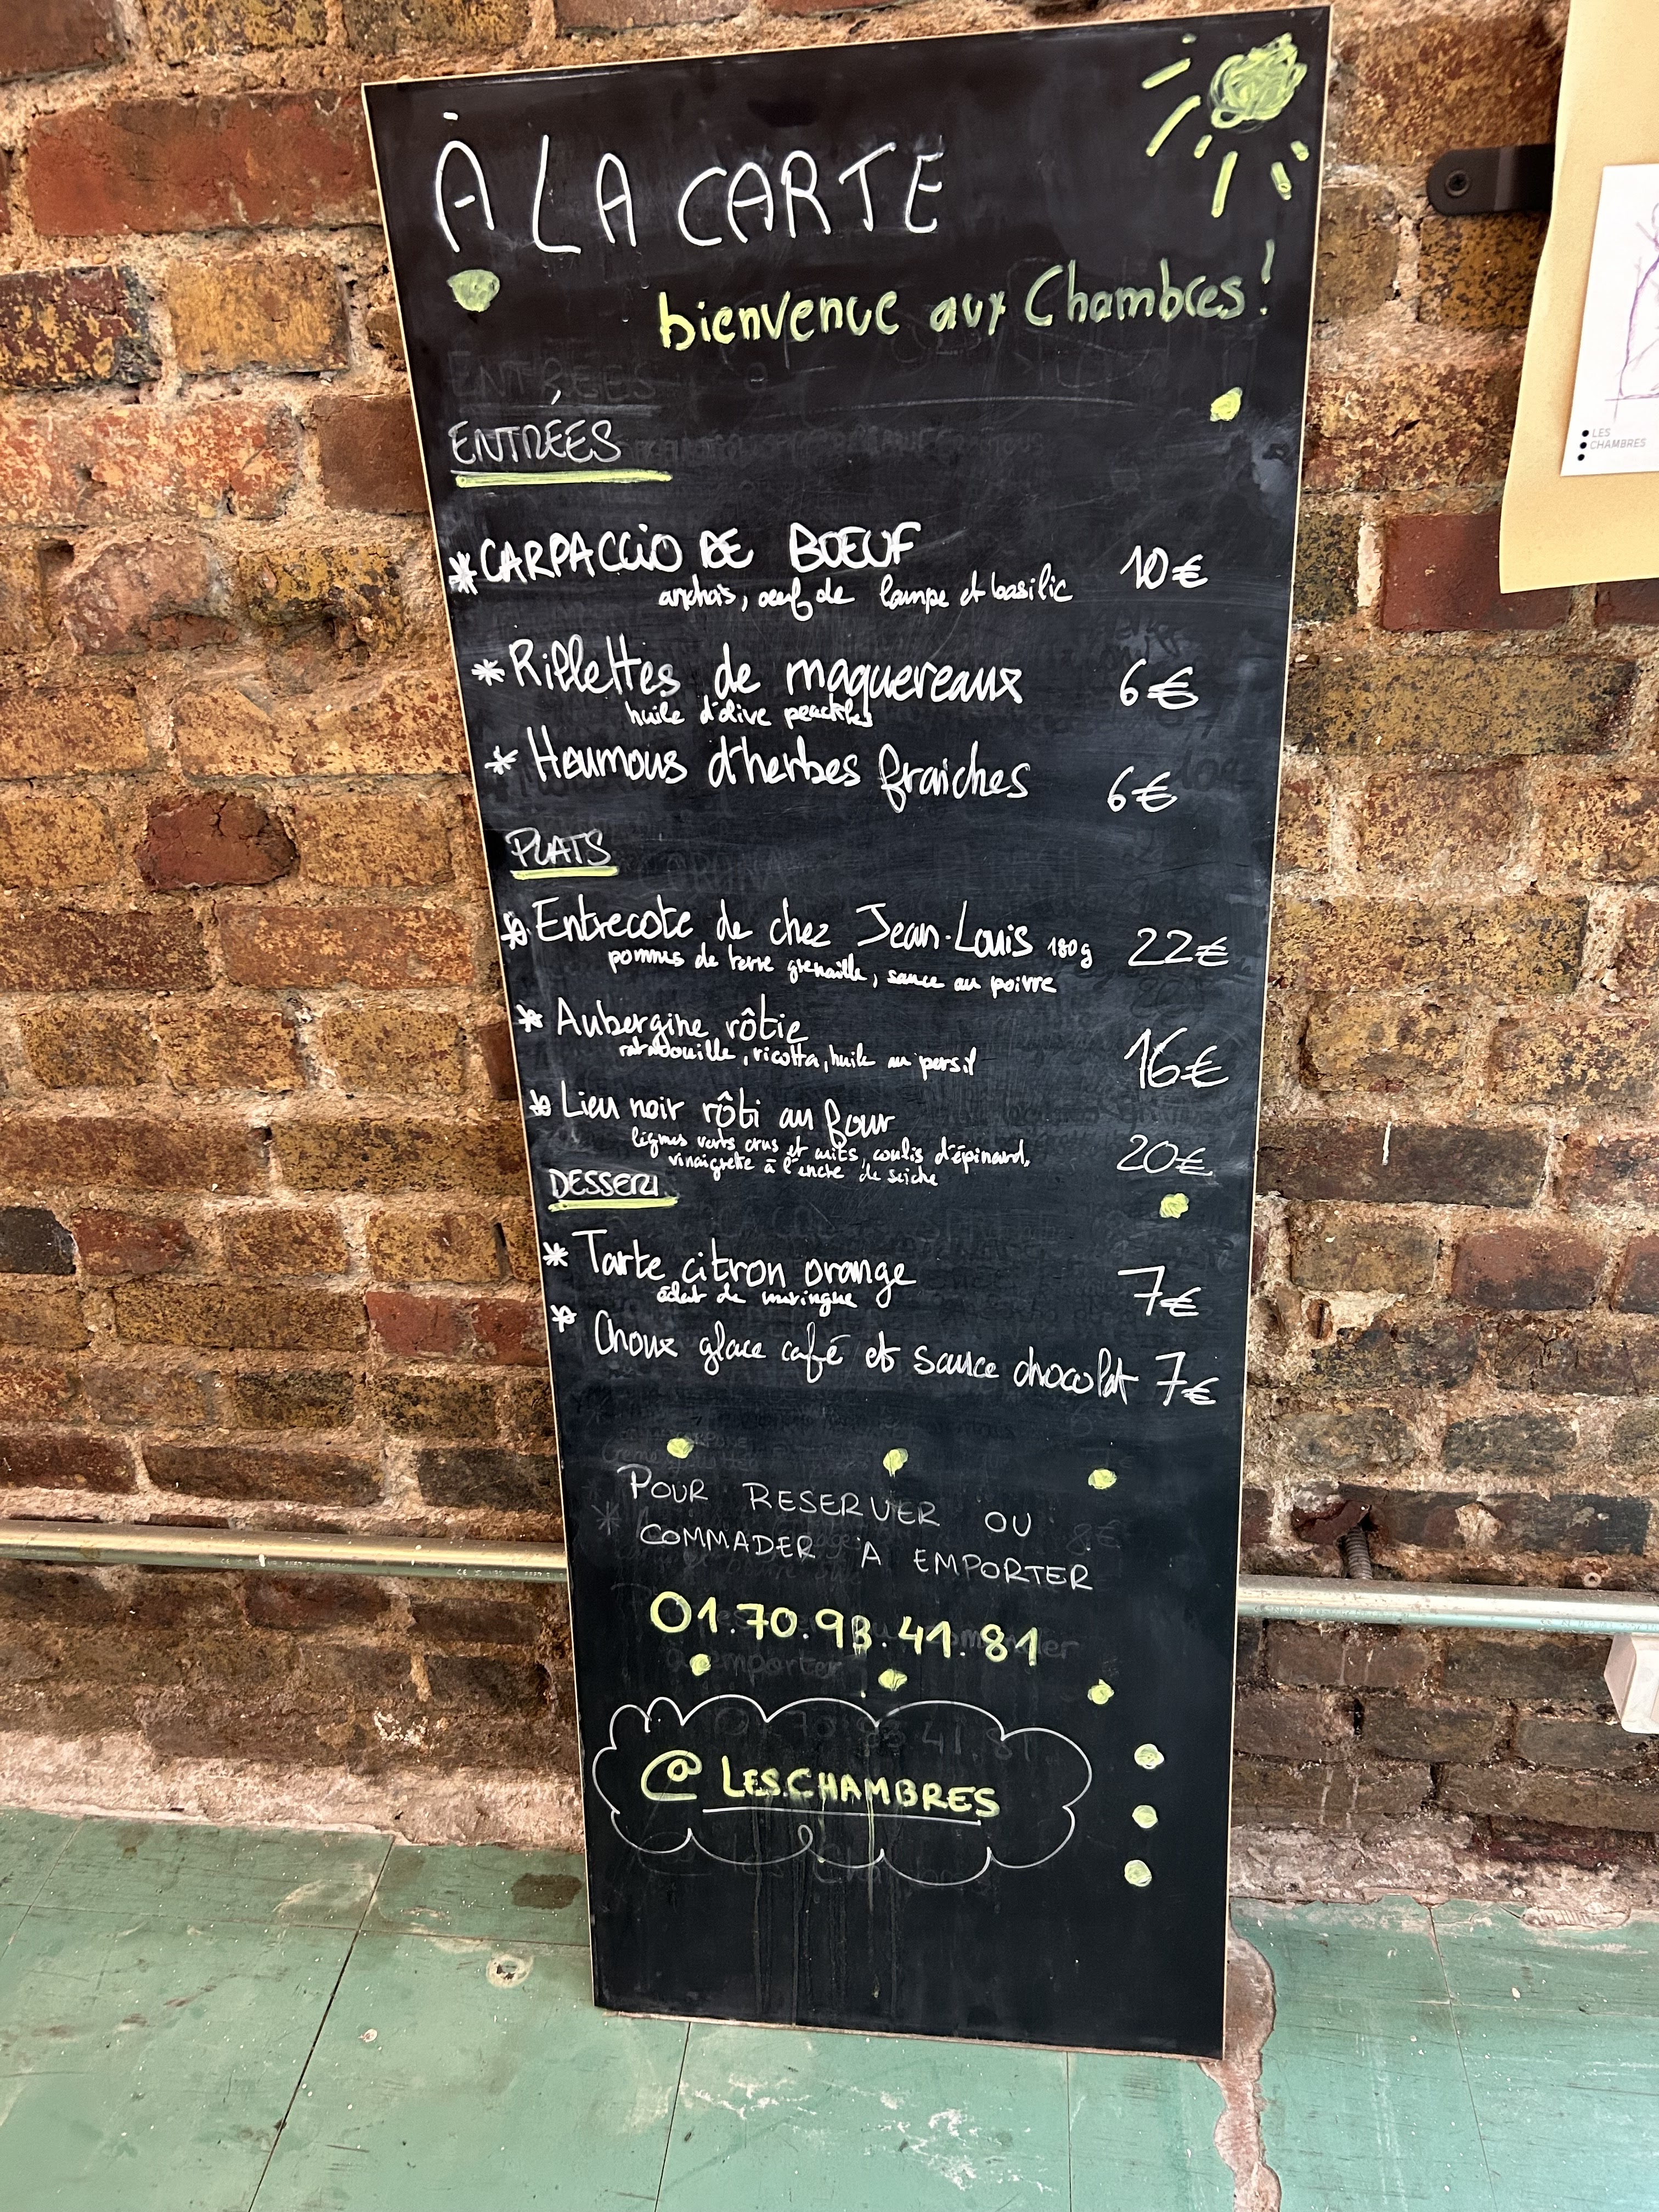 À LA CARTE
bienvenue aux Chambres!
ENTRÉES
*CARPACCIO DE BOEUF 10€
anchois, oeuf de lompe et basilic
*Rillettes de maquereaux 6€
huile d'olive
*Houmous d'herbes fraiches 6€
PLATS
*Entrecote de chez Jean-Louis 180g 22€
pommes de terre grenaille, sauce au poivre
*Aubergine rôtie 16€
ratatouille, ricotta, huile au persil
*Lieu noir rôti au four 20€
légumes verts crus et cuits, coulis d'épinard,
vinaigrette à l'encre de seiche
DESSERT
*Tarte citron orange 7€
éclat de meringue
*Choux glace café et sauce chocolat 7€
POUR RESERVER OU
COMMADER A EMPORTER
01.70.93.41.81
@LES.CHAMBRES
LES
CHAMBRES